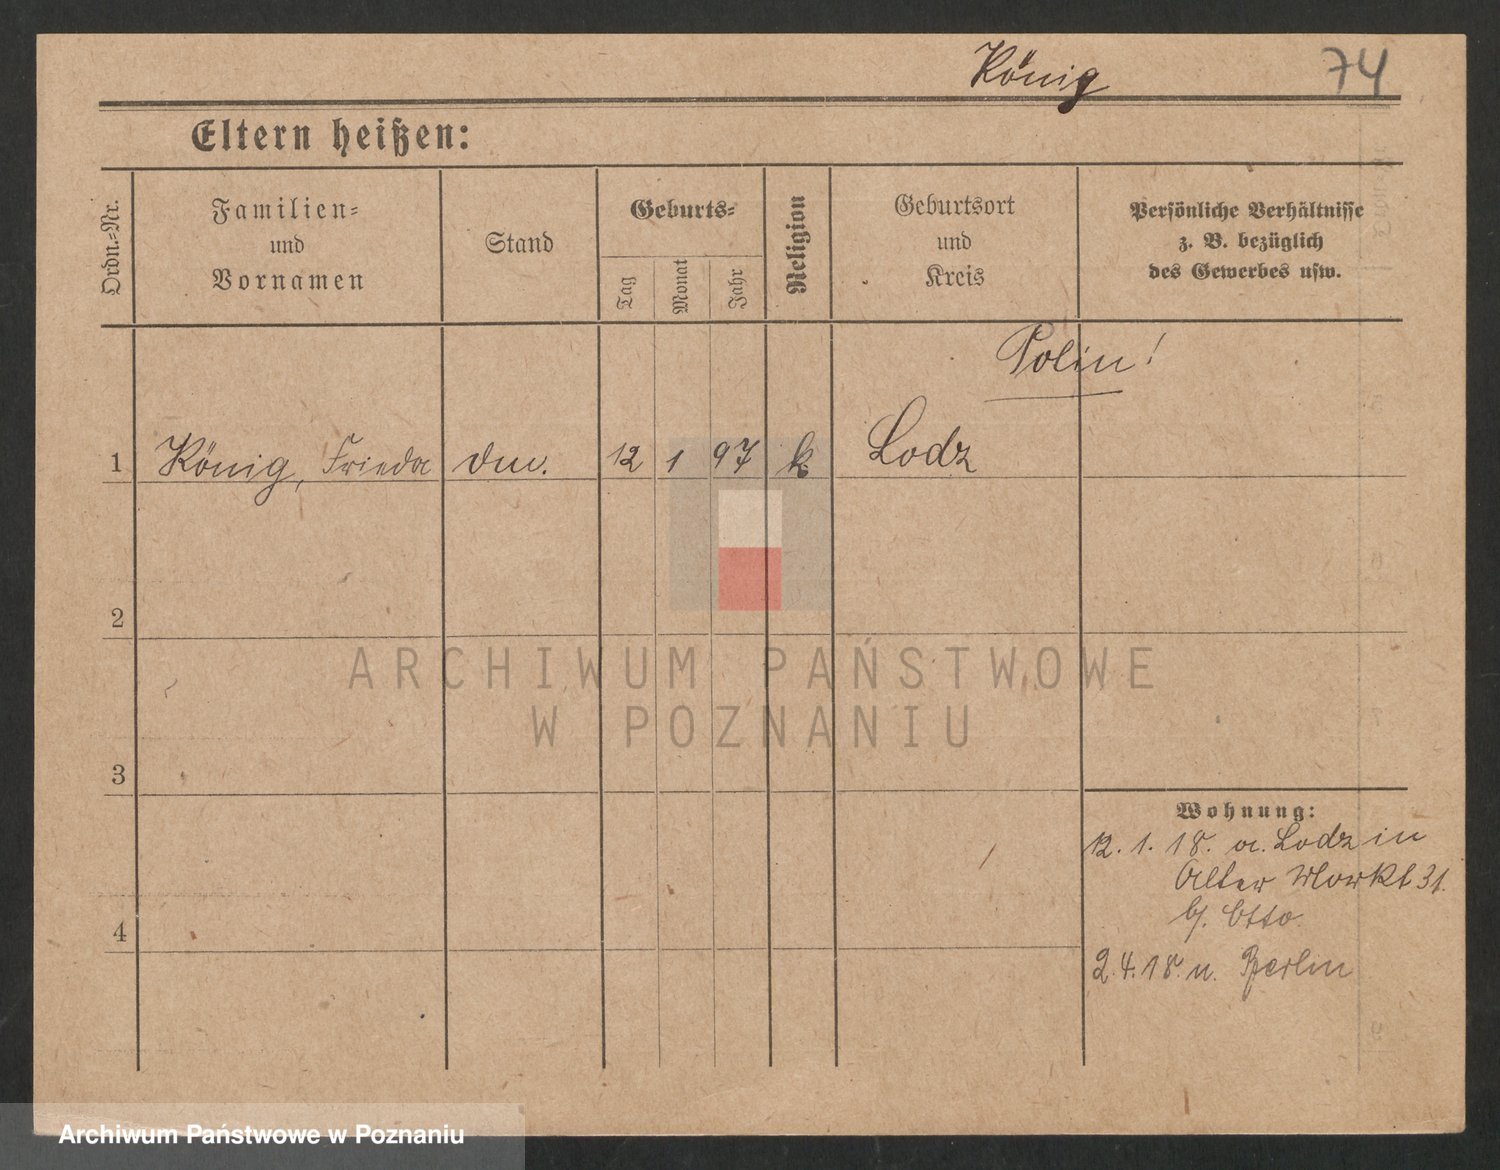 König 74
Eltern heißen:
Ordn.=Nr.
Familien=
und
Vornamen
Stand
Geburts=
Tag
Monat
Jahr
Religion
Geburtsort
und
Kreis
Persönliche Verhältnisse
z. B. bezüglich
des Gewerbes usw.
Polin!
1 König, Frieda 12 1 97 k Lodz
2
3
4
Wohnung:
12. 1. 18. a. Lodz in
Alter Markt 31.
b/. Otto
2.4.18. n. Berlin
ARCHIWUM PAŃSTWOWE
W POZNANIU
Archiwum Państwowe w Poznaniu